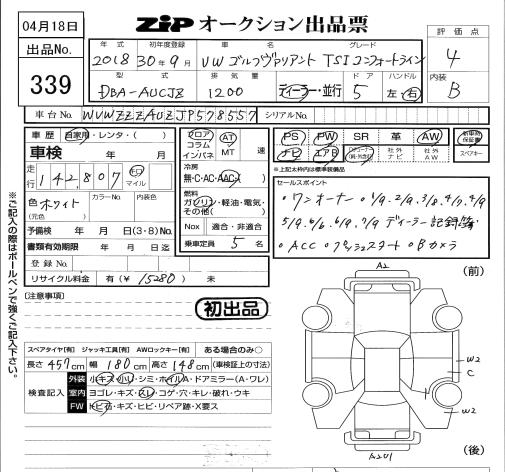 04月18日
出品No.
339
ZIP オークション出品票
評価点
4
内装
B
年式 初年度登録 車名 グレード
2018 30年9月 VW ゴルフヴァリアント TSIコンフォートライン
型式 排気量 ドア ハンドル
DBA-AUCJZ 1200 ディーラー・並行 5 左・右
車台No. WVWZZZAUZJP578557 シリアルNo.
車歴 自家用・レンタ・( )
車検 年 月
走行 142,807 km マイル
色 ホワイト カラーNo. 内装色
(元色)
予備検 年 月 日(3・8)No.
書類有効期限 年 月 日迄
登録No.
リサイクル料金 有(¥ 15280 )未
フロア AT
コラム
インパネ MT 速
冷房
無・C・AC・AAC
燃料
ガソリン・軽油・電気・
その他( )
Nox 適合・非適合
乗車定員 5 名
PS PW SR 革 AW 新車時保証書
ナビ エアB 社外ナビ 社外AW スペアキー
*上記太枠内は標準装備品
セールスポイント
・ワンオーナー ・1/9. 2/9. 3/9. 4/9. 4/9
5/9. 6/6. 6/9. 7/9 ディーラー記録簿
・ACC ・プッシュスタート ・Bカメラ
※ご記入の際はボールペンで強くご記入下さい。
[注意事項]
初出品
スペアタイヤ[有] ジャッキ工具[有] AWロックキー[有] ある場合のみ○
長さ 457cm 幅 180cm 高さ 148cm (車検証上の寸法)
検査記入
外装 小キズ・小凹・シミ・ホイルA・ドアミラー(A・ワレ)
室内 ヨゴレ・キズ・スレ・コゲ・穴・キレ・破れ・ウキ
FW トビ石・キズ・ヒビ・リペア跡・X要ス
(前)
A2
W2
C
W2
A2U1
(後)